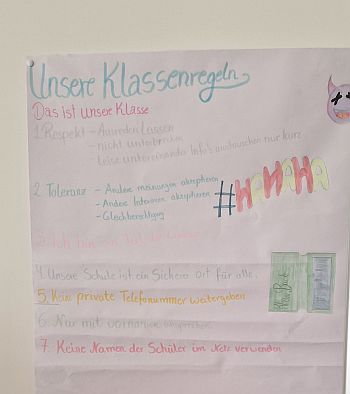 Unsere Klassenregeln
Das ist unsere Klasse
1. Respekt - Ausreden lassen
- nicht unterbrechen
- leise untereinander Info's austauschen nur kurz
2. Toleranz - Andere meinungen akzeptieren
- Andere Interessen akzeptieren
- Gleichberechtigung
#HAHAHA
3. Ich bin ein Teil der
4. Unsere Schule ist ein Sicherer ort für alle.
5. Kein private Telefonummer weitergeben
6. Nur mit vornamen ansprechen
7. Keine Namen der Schüler im Netz verwenden